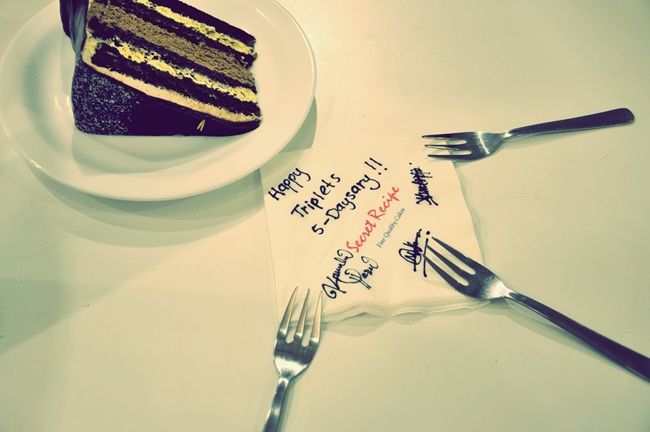 Happy
Triplets
5-Daysary!!
Secret Recipe
Fine Quality Cakes